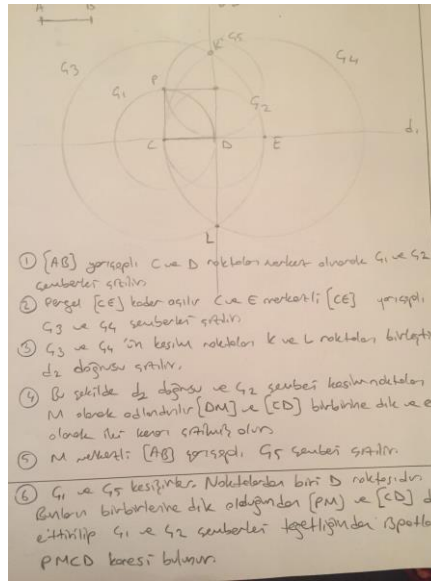 A B
Ç3 K Ç5 Ç4
Ç1 P Ç2
C D E d1
L
① [AB] yarıçaplı C ve D noktaları merkez alınarak Ç1 ve Ç2
çemberleri çizilir.
② Pergel [CE] kadar açılır C ve E merkezli [CE] yarıçaplı
Ç3 ve Ç4 çemberleri çizilir.
③ Ç3 ve Ç4'ün kesişim noktaları K ve L noktaları birleşti
d2 doğrusu çizilir.
④ Bu şekilde d2 doğrusu ve Ç2 çemberi kesişim noktaları
M olarak adlandırılır [DM] ve [CD] birbirine dik ve e
olarak iki kenarı çizilmiş olur.
⑤ M merkezli [AB] yarıçaplı Ç5 çemberi çizilir.
⑥ Ç1 ve Ç5 kesişirler. Noktalardan biri D noktasıdır.
Bunların birbirlerine dik olduğundan [PM] ve [CD] d
ettirilip Ç1 ve Ç2 çemberleri teğetliğinden
PMCD karesi bulunur.